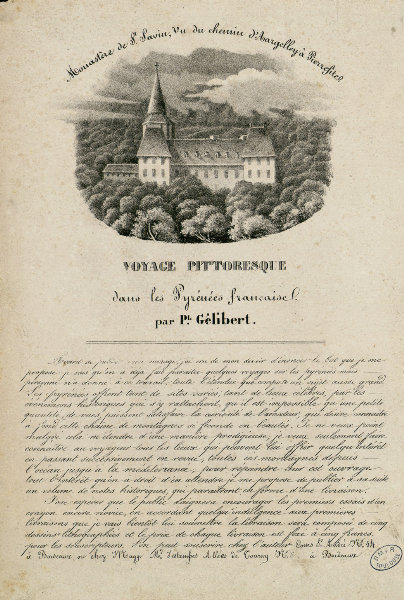 Monastère de St. Savin, Vu du chemin d'Aargelley à Pierrefitte
VOYAGE PITTORESQUE
dans les Pyrénées françaises
par Pl. Gélibert.
Avant de ouvrage, j'ai cru de mon devoir d'énoncer le but que je me
propose. je sais qu'on a déjà fait paraître quelques voyages sur les pyrénées mais
personne n'a donné à ce travail, toute l'étendue que comporte un sujet aussi grand
Les pyrénées offrent tant de sites variés, tant de lieux célèbres par les
événements historiques qui s'y rattachent, qu'il est impossible qu'une petite
quantité de vues puissent satisfaire la curiosité de l'amateur qui désire connaître
à fond cette chaîne de montagnes si féconde en beautés. Je ne veux point
malgré cela m'étendre d'une manière prodigieuse, je veux seulement faire
connaître au voyageur tous les lieux qui peuvent lui offrir quelqu'intérêt
en passant successivement en revue, toutes les montagnes depuis
l'Océan jusqu'à la méditerranée, pour répandre sur cet ouvrage
tout l'intérêt qu'on a droit d'en attendre je me propose de publier à sa suite
un volume de notes historiques qui paraîtront en forme d'une livraison,
J'ose espérer que le public daignera encourager les premiers essais d'un
crayon encore novice, en accordant quelqu'indulgence aux premières
livraisons que je vais bientôt lui soumettre la livraison sera composée de cinq
dessins lithographiés et le prix de chaque livraison est fixé à cinq francs.
pour les souscripteurs. l'on peut souscrire chez l'auteur No. 34
à Bordeaux ou chez Maggi Md. d'estampes Allées de Tourny No. à Bordeaux